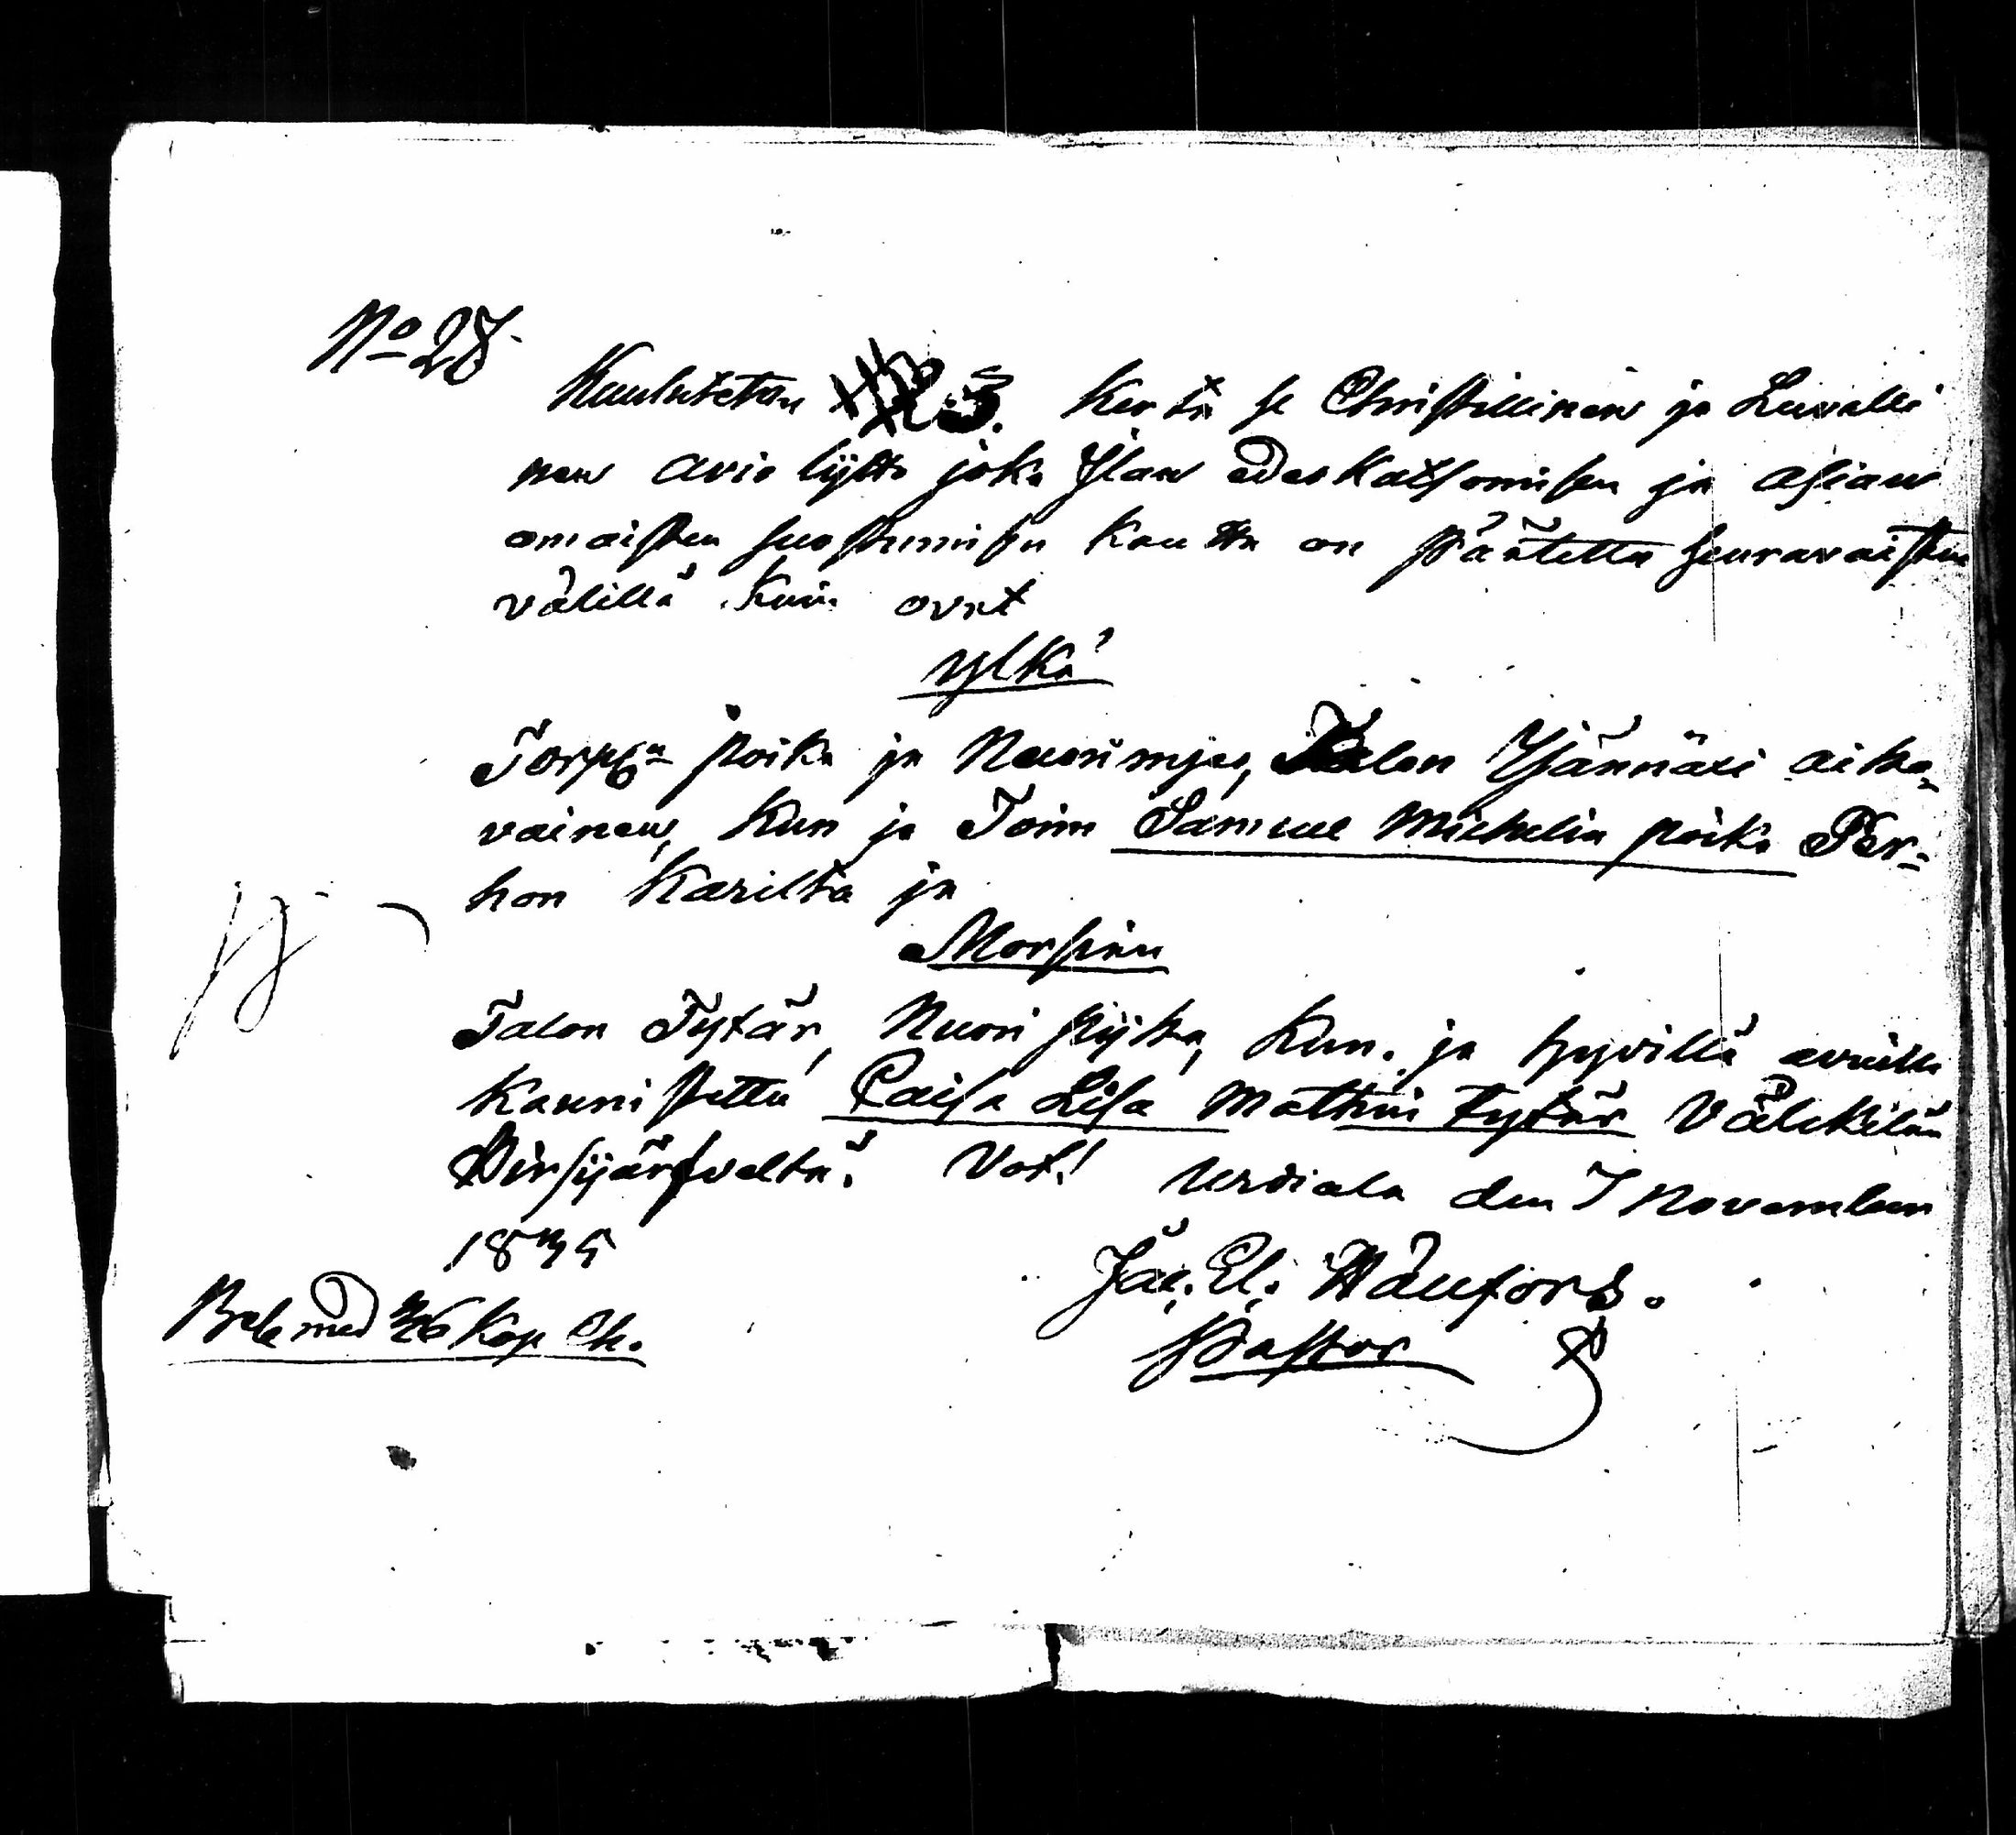 No 28
Kuulutetan 3. Kerta se Christillinen ja Luvalli
nen avio lijtto joka Jlan edeskatsomisen ja asian
omaisten suostumisen kautta on päätetty seuravaisten
välillä kuin ovat
ylkä
poika ja Nuorimies, Talon Ysännäxi aiko-
vainen, Kun ja Toim Samuel Michelin poika Per-
hon Karilta ja
Morsian
Talon Tytär, Nuori pijka, Kun. ja hyvillä avuilla
kaunistettu Caisa Lisa Mattin tytär Välikilän
Vot! Urdiala den 7 November
1835
Jac. El. Wänfors.
med Kop
Pastor